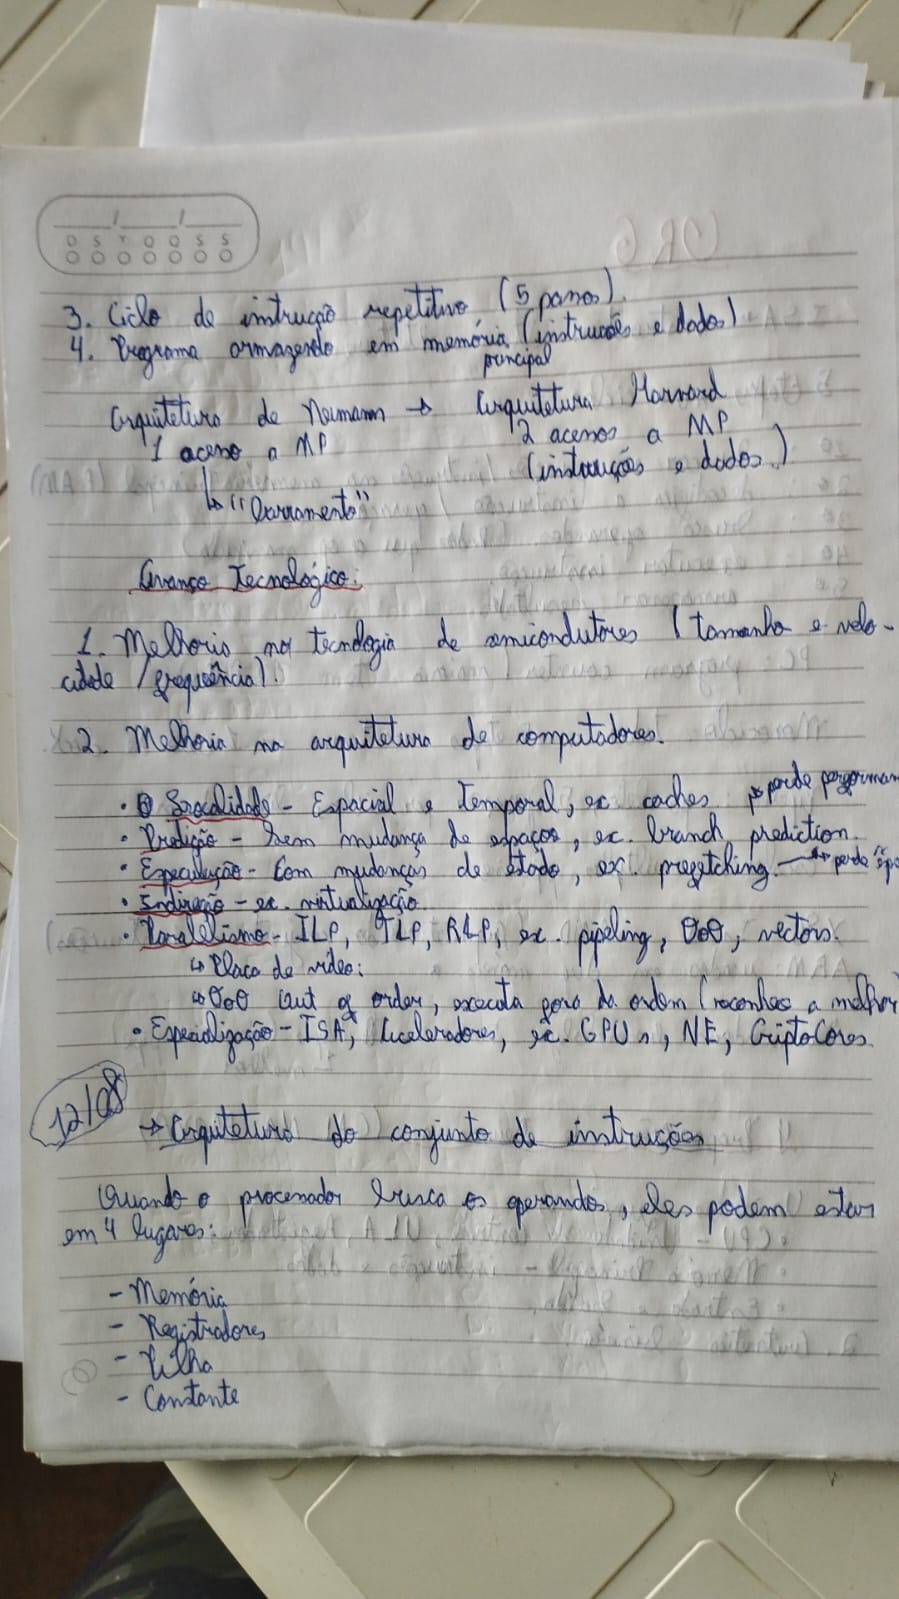 D S T Q Q S S
3. Ciclo de instrução repetitivo. (5 passos).
4. Programa armazendo em memória principal (instruções e dados)
Arquitetura de Neumann → Arquitetura Harvard
1 acesso a MP
2 acessos a MP
(instruções e dados.)
↳ "Barramento"
Avanço Tecnológico:
1. Melhoria na tecnologia de semicondutores (tamanho e velo-
cidade / frequência).
2. Melhoria na arquitetura de computadores.
• Localidade - Espacial e Temporal, ex caches → perde performan
• Predição - Sem mudança de espaços, ex. branch prediction.
• Especulação - Com mudanças de estado, ex. prefetching. → perde
• Indireção - ex. virtualização
• Paralelismo - ILP, TLP, RLP, ex. pipeling, OoO, vectors.
↳ Placa de vídeo:
↳ OoO Out of order, executa fora da ordem (reconhece a melhor
• Especialização - ISA, Aceleradores, ex. GPUs, NE, CriptoCores
12/08
→ Arquitetura do conjunto de instruções
Quando o processador busca os operandos, eles podem estar
em 4 lugares:
- Memória
- Registradores
- Pilha
- Constante